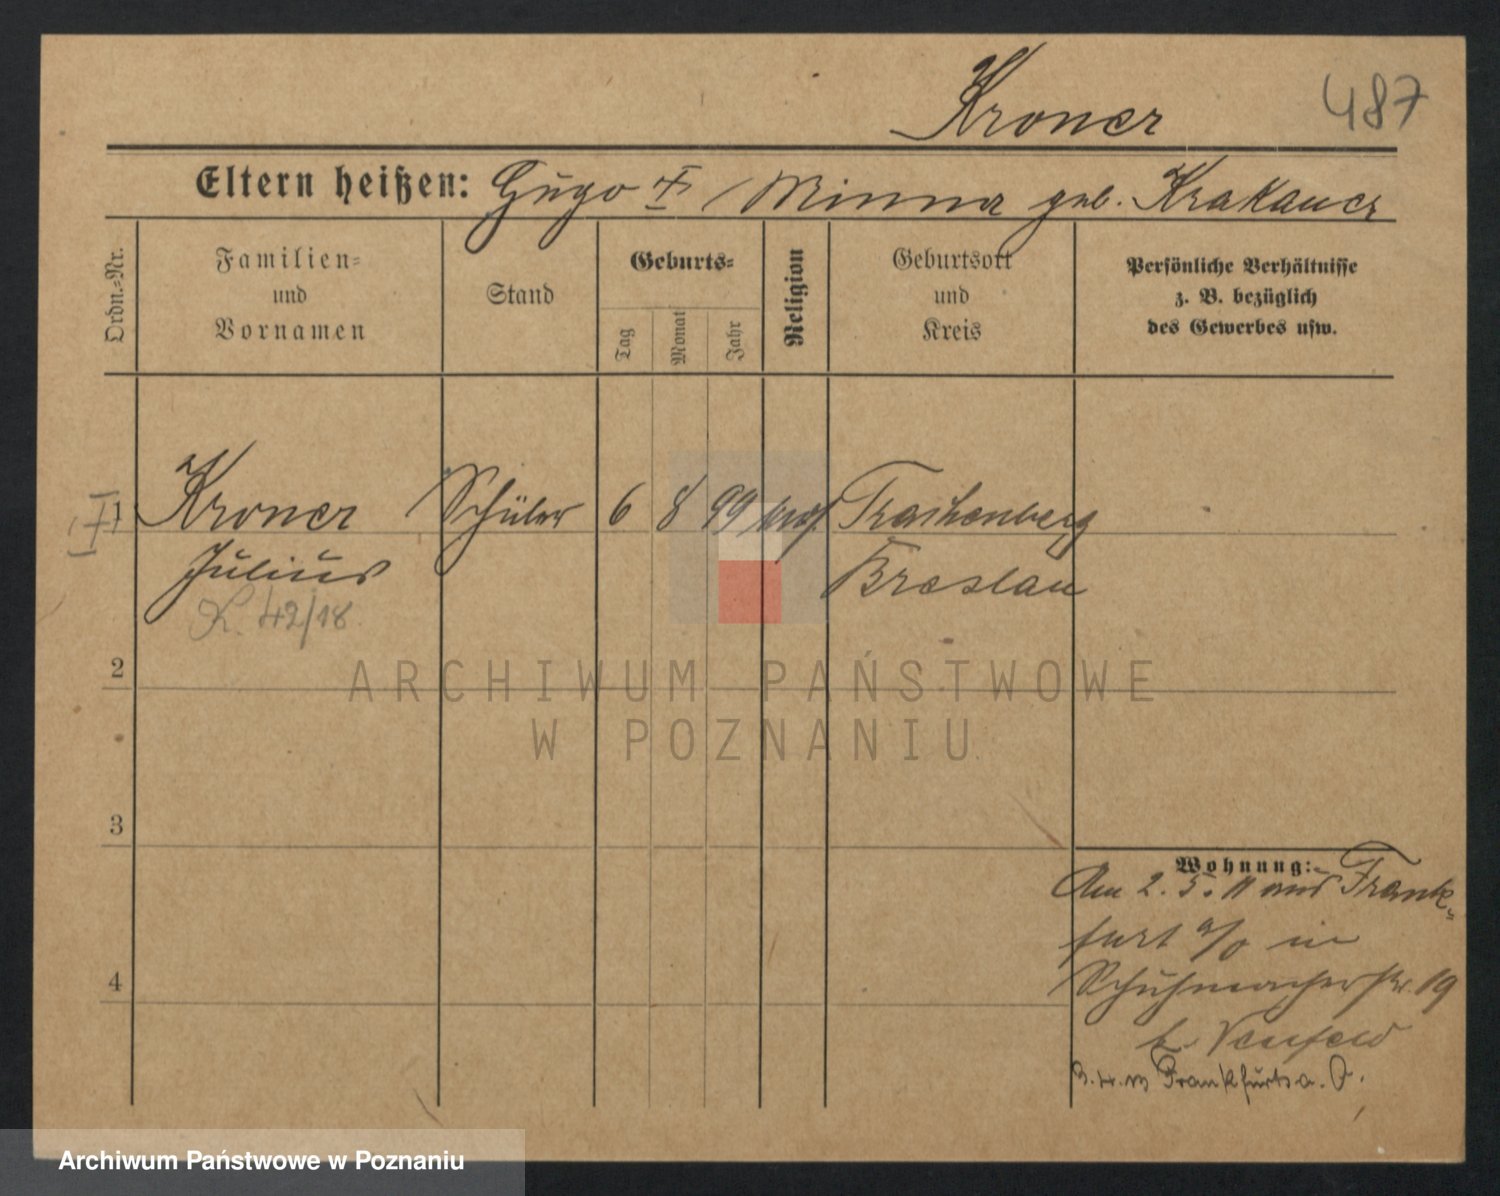 Kroner
487
Eltern heißen: Hugo ✝ / Minna geb. Krakauer
Ordn.-Nr.
Familien-
und
Vornamen
Stand
Geburts-
Tag
Monat
Jahr
Religion
Geburtsort
und
Kreis
Persönliche Verhältnisse
z. B. bezüglich
des Gewerbes usw.
1 Kroner Schüler 6 8 99 mos. Trachenberg
Julius Breslau
K. 42/18.
2
ARCHIWUM PAŃSTWOWE
W POZNANIU
3
Wohnung:
Am 2. 5. 11 aus Frank-
furt a/O in
Schuhmacherstr. 19
b.
Frankfurt a. O.
4
Archiwum Państwowe w Poznaniu